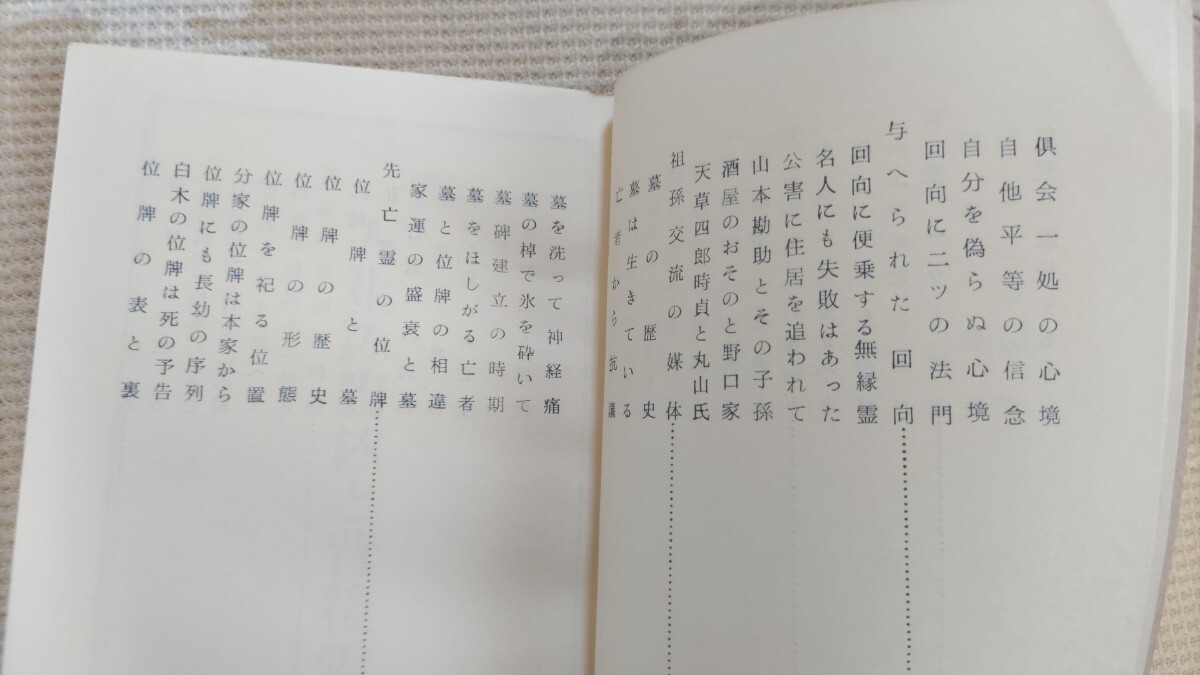 倶会一処の心境
自他平等の信念
自分を偽らぬ心境
回向に二ツの法門
与へられた回向
回向に便乗する無縁霊
名人にも失敗はあった
公害に住居を追われて
山本勘助とその子孫
酒屋のおそのと野口家
天草四郎時貞と丸山氏
祖孫交流の媒体
墓の歴史
墓は生きている
亡者から抗議
墓を洗って神経痛
墓の棹で氷を砕いて
墓碑建立の時期
墓をほしがる亡者
墓と位牌の相違
家運の盛衰と墓
先亡霊の位牌
位牌と墓
位牌の歴史
位牌の形態
位牌を祀る位置
分家の位牌は本家から
位牌にも長幼の序列
白木の位牌は死の予告
位牌の表と裏